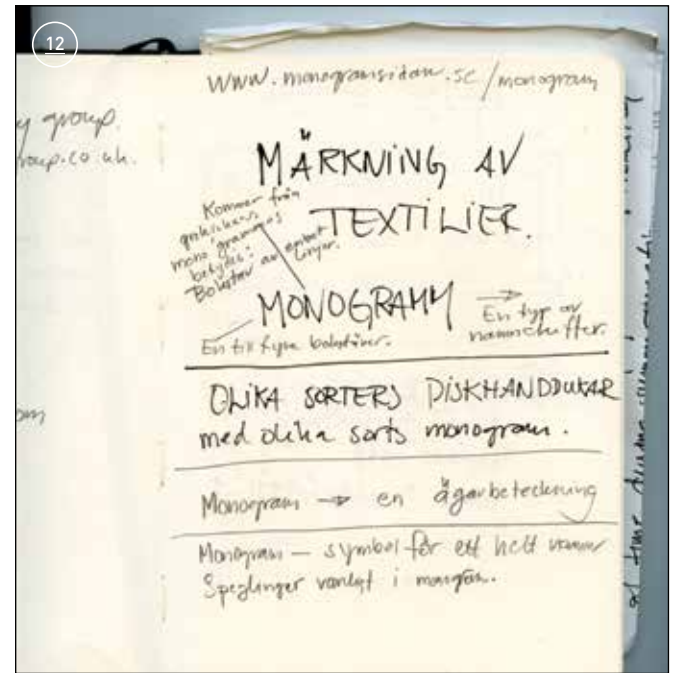 12
y group.
roup.co.uk.
www.monogramsidan.se/monogram
MÄRKNING AV
TEXTILIER.
Kommer från
grekiskans
mono grammos
betyder:
Bokstav av enbart
linjer.
MONOGRAMM
En typ av
namnchiffer.
En till fyra bokstäver.
OLIKA SORTERS DISKHANDDUKAR
med olika sorts monogram.
Monogram → en ägarbeteckning
Monogram — symbol för ett helt
Speglingar vanligt i